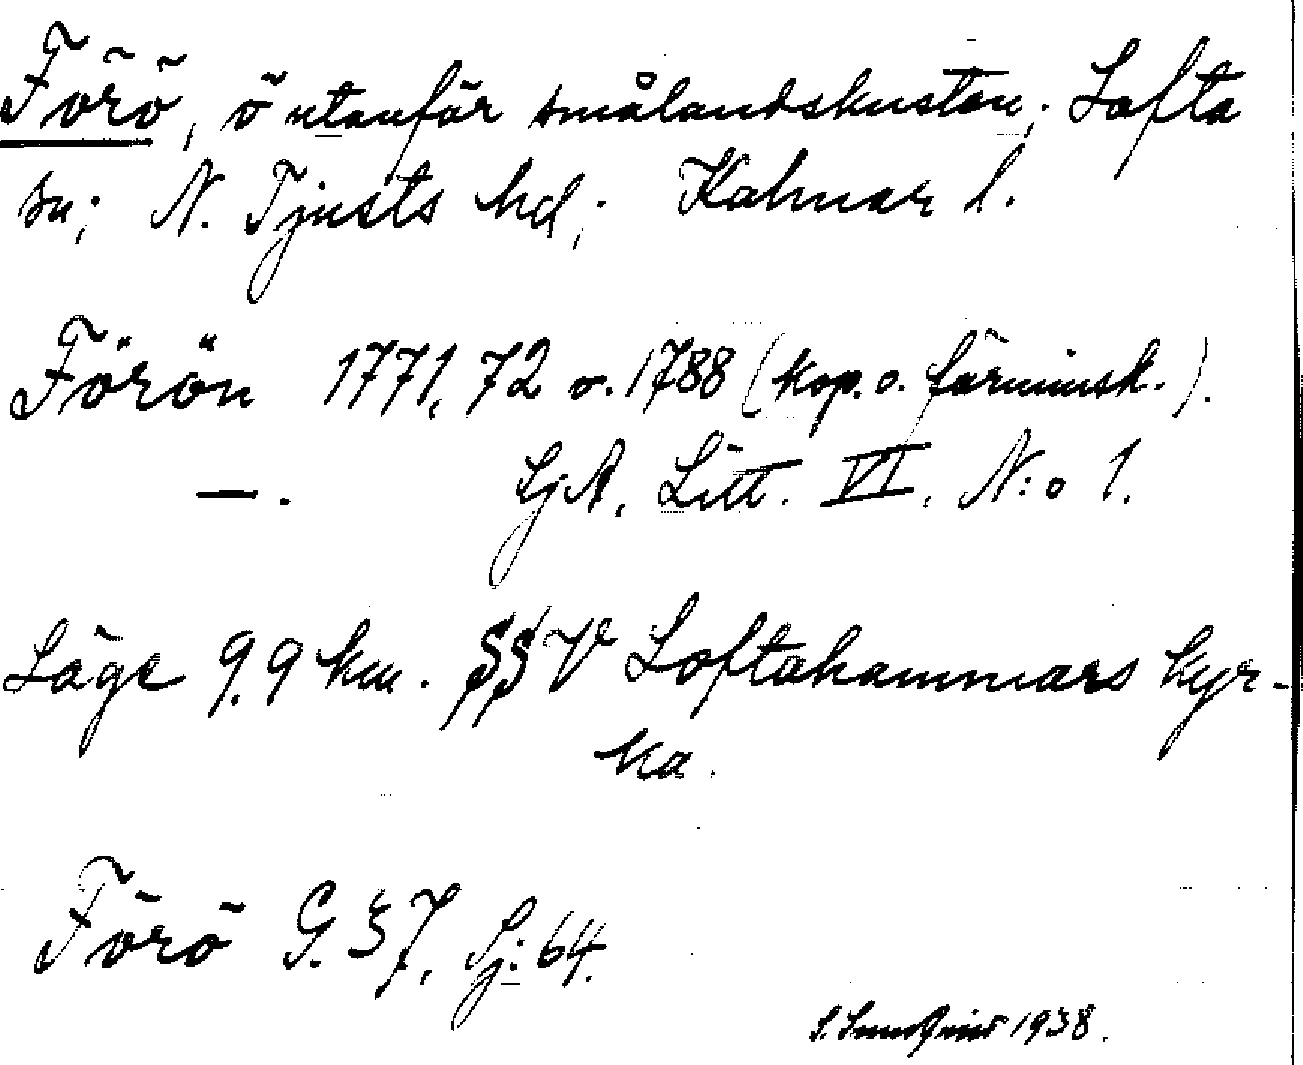 Förö, ö utanför smålandskusten; Lofta
sn; N. Tjusts hd; Kalmar l.
Förön 1771, 72 o. 1788 (kop. o. förminsk.).
—. SjA, Litt. VI, N:o 1.
Läge 9,9 km. SSV Loftahammars kyr-
ka.
Förö G. 37, Sj: 64.
S. 1938.